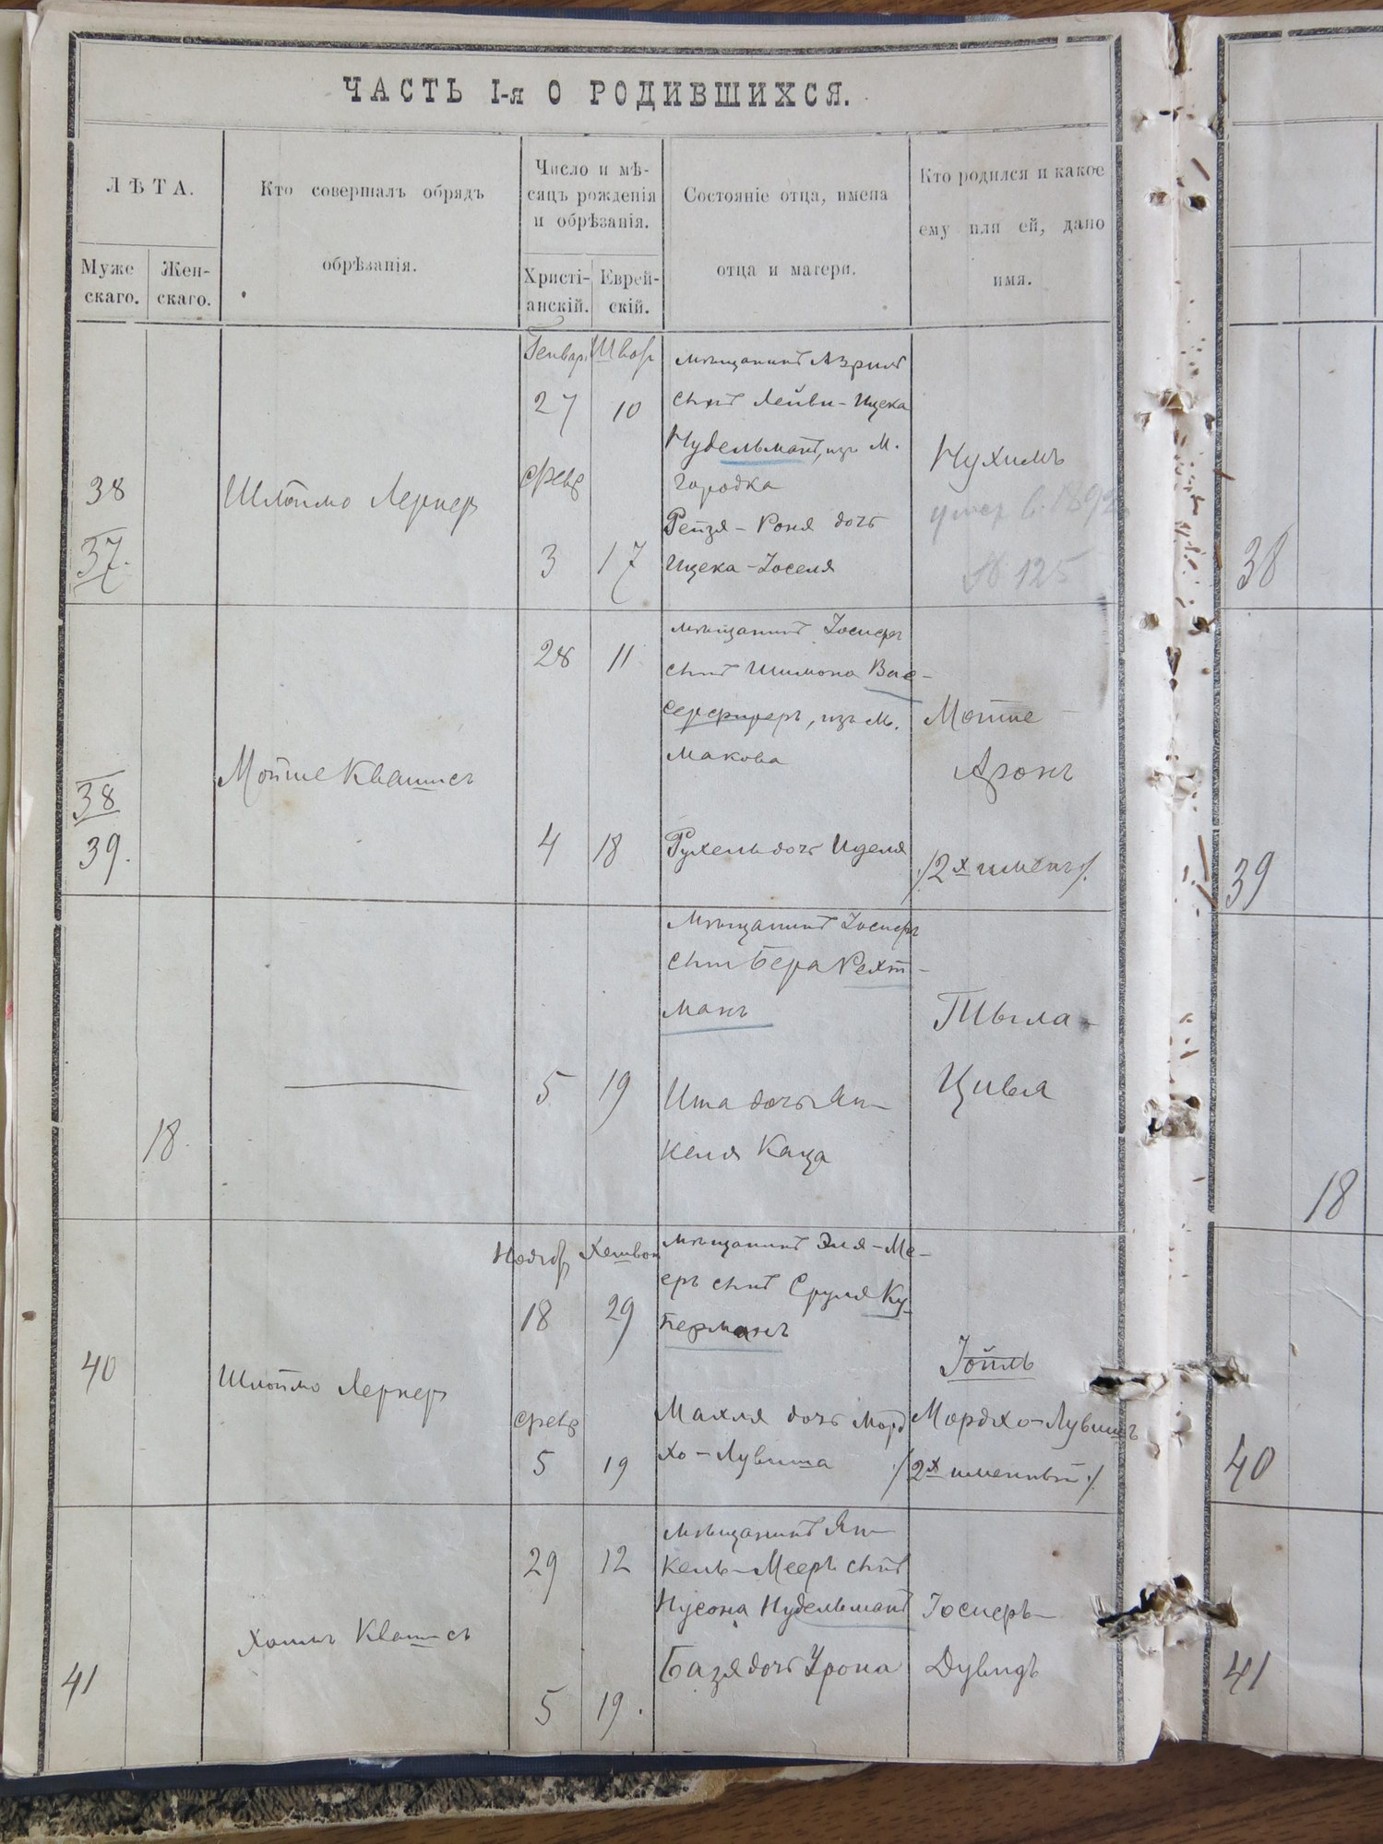 ЧАСТЬ I-я О РОДИВШИХСЯ.
ЛѢТА.
Муже
скаго.
Жен-
скаго.
Кто совершалъ обрядъ
обрѣзанія.
Число и мѣ-
сяцъ рожденія
и обрѣзанія.
Христі-
анскій.
Еврей-
скій.
Состояніе отца, имена
отца и матери.
Кто родился и какое
ему или ей, дано
имя.
38
37.
Шлоймо Лернеръ
Генвар.
27
февр
3
10
17
мѣщанинъ Азриль
сынъ Лейви-Ицека
Нудельманъ, изъ М.
Городка
Рейзя-Роня дочь
Ицека-Іоселя
Нухимъ
умер в. 1892
№ 125
38
38
39.
Мойше Квашисъ
28
4
11
18
мѣщанинъ Іосифъ
сынъ Шимона Вас-
серфиреръ, изъ М.
Макова
Рухель дочь Иделя
Мошше
Аронъ
/2х именъ/.
39
18.
5
19
Мѣщанинъ Іосифъ
сынъ Бера Рехт-
манъ
Ита дочь Ян-
келя Каца
Тыла-
Цивья
18
40
Шлоймо Лернеръ
Ноябр
18
февр
5
Хешвон
29
19
Мѣщанинъ Эля-Ме-
еръ сынъ Сруля Ку-
перманъ
Махля дочь Морд
хо-Лувиша
Іойль
Мордхо-Лувишъ
/2х именный/.
40
41
Хаимъ Квашисъ
29
5
12
19.
мѣщанинъ Ян-
кель-Мееръ сынъ
Нусона Нудельманъ
Базя дочь Урона
Іосифъ-
Дувидъ
41